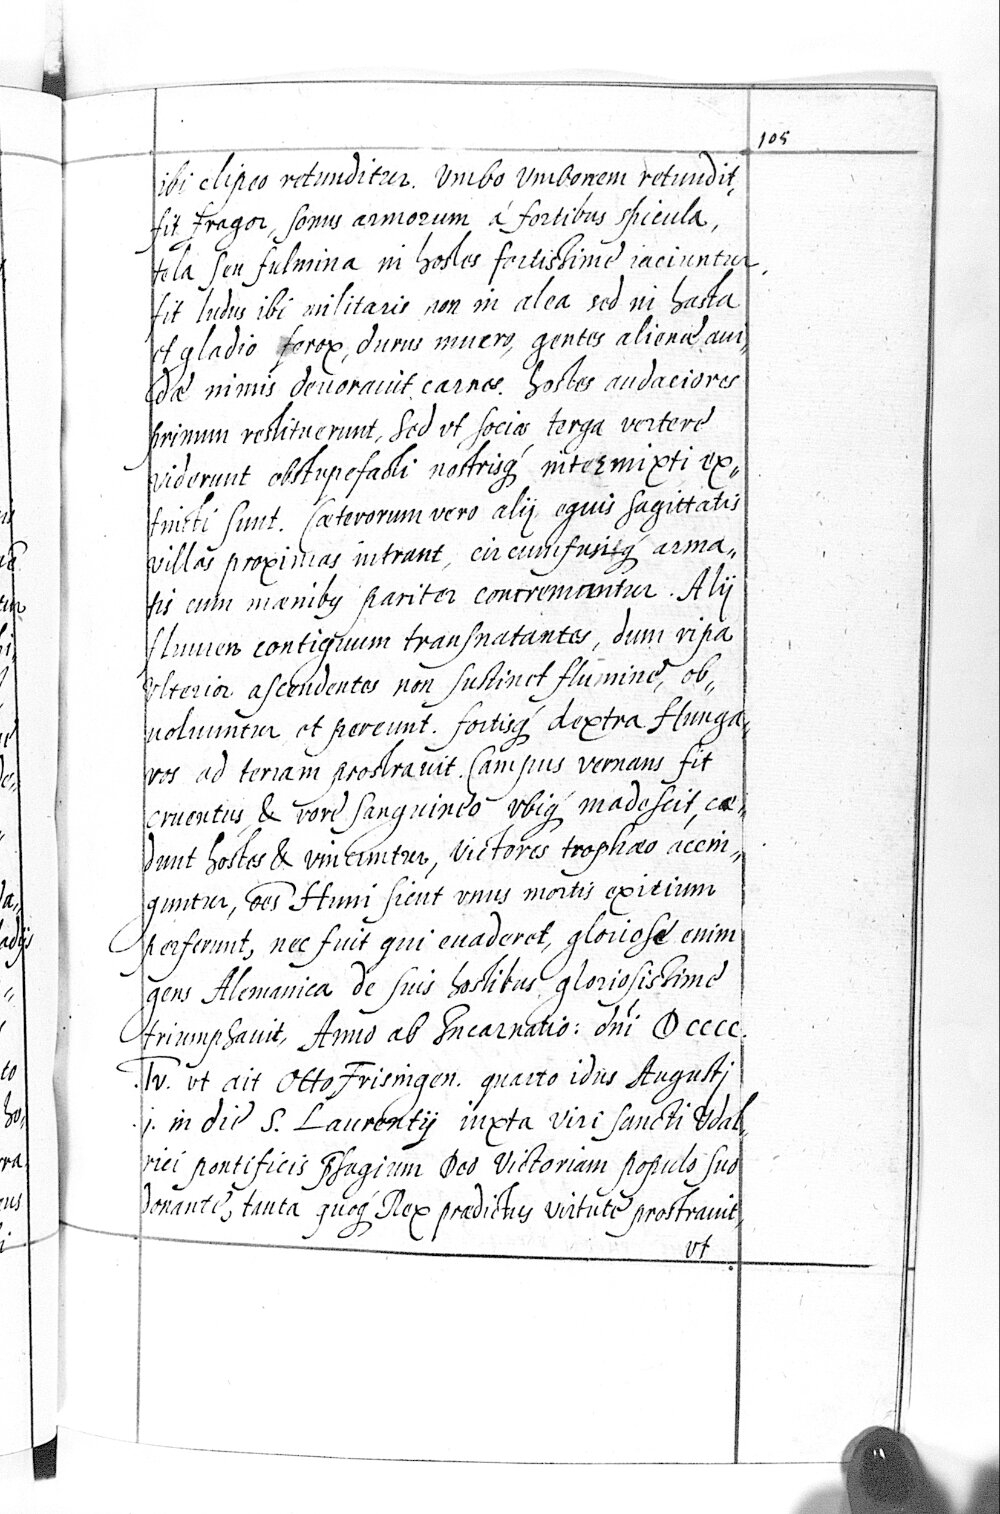 105
ibi clipeo retunditur. Vmbo Vmbonem retundit,
fit fragor, sonus armorum á fortibus spicula,
tela seu fulmina in hostes fortissimè iaciuntur.
fit ludus ibi militaris non in alea sed in hasta
et gladio ferox, durus mucro, gentes alienæ aui„
dæ nimis deuorauit carnes. hostes audaciores
primum restituerunt, Sed vt socias terga vertere
viderunt obstupefacti nostrisq́ intermixti ex„
tincti sunt. Cæterorum vero alij equis sagittatis
villas proximas intrant, circumfusisq́ arma„
tis cum mænibꝰ pariter concremantur. Alij
flumen contiguum transnatantes, dum ripa
vlterior ascendentes non sustinet flumine, ob„
uoluuntur et pereunt. fortisq́ dextra Hunga„
ros ad terram prostrauit. Campus vernans fit
cruentus, & rore sanguineo vbiq́ madescit, cæ„
dunt hostes & vincuntur, Victores trophæo accin„
guntur, oēs Huni sicut vnus mortis exitium
perferunt, nec fuit qui euaderet, gloriose enim
gens Alemanica de suis hostibus gloriosissimè
triumphauit, Anno ab Incarnatio: dni D cccc.
.Iv. vt ait Otto Frisingen. quarto idus Augusti
.j. in die S. Laurentij iuxta viri sancti Vdal„
rici pontificis Psagium Deo Victoriam populo suo
donante, tanta quoq́ Rex prædictus virtute prostrauit,
vt